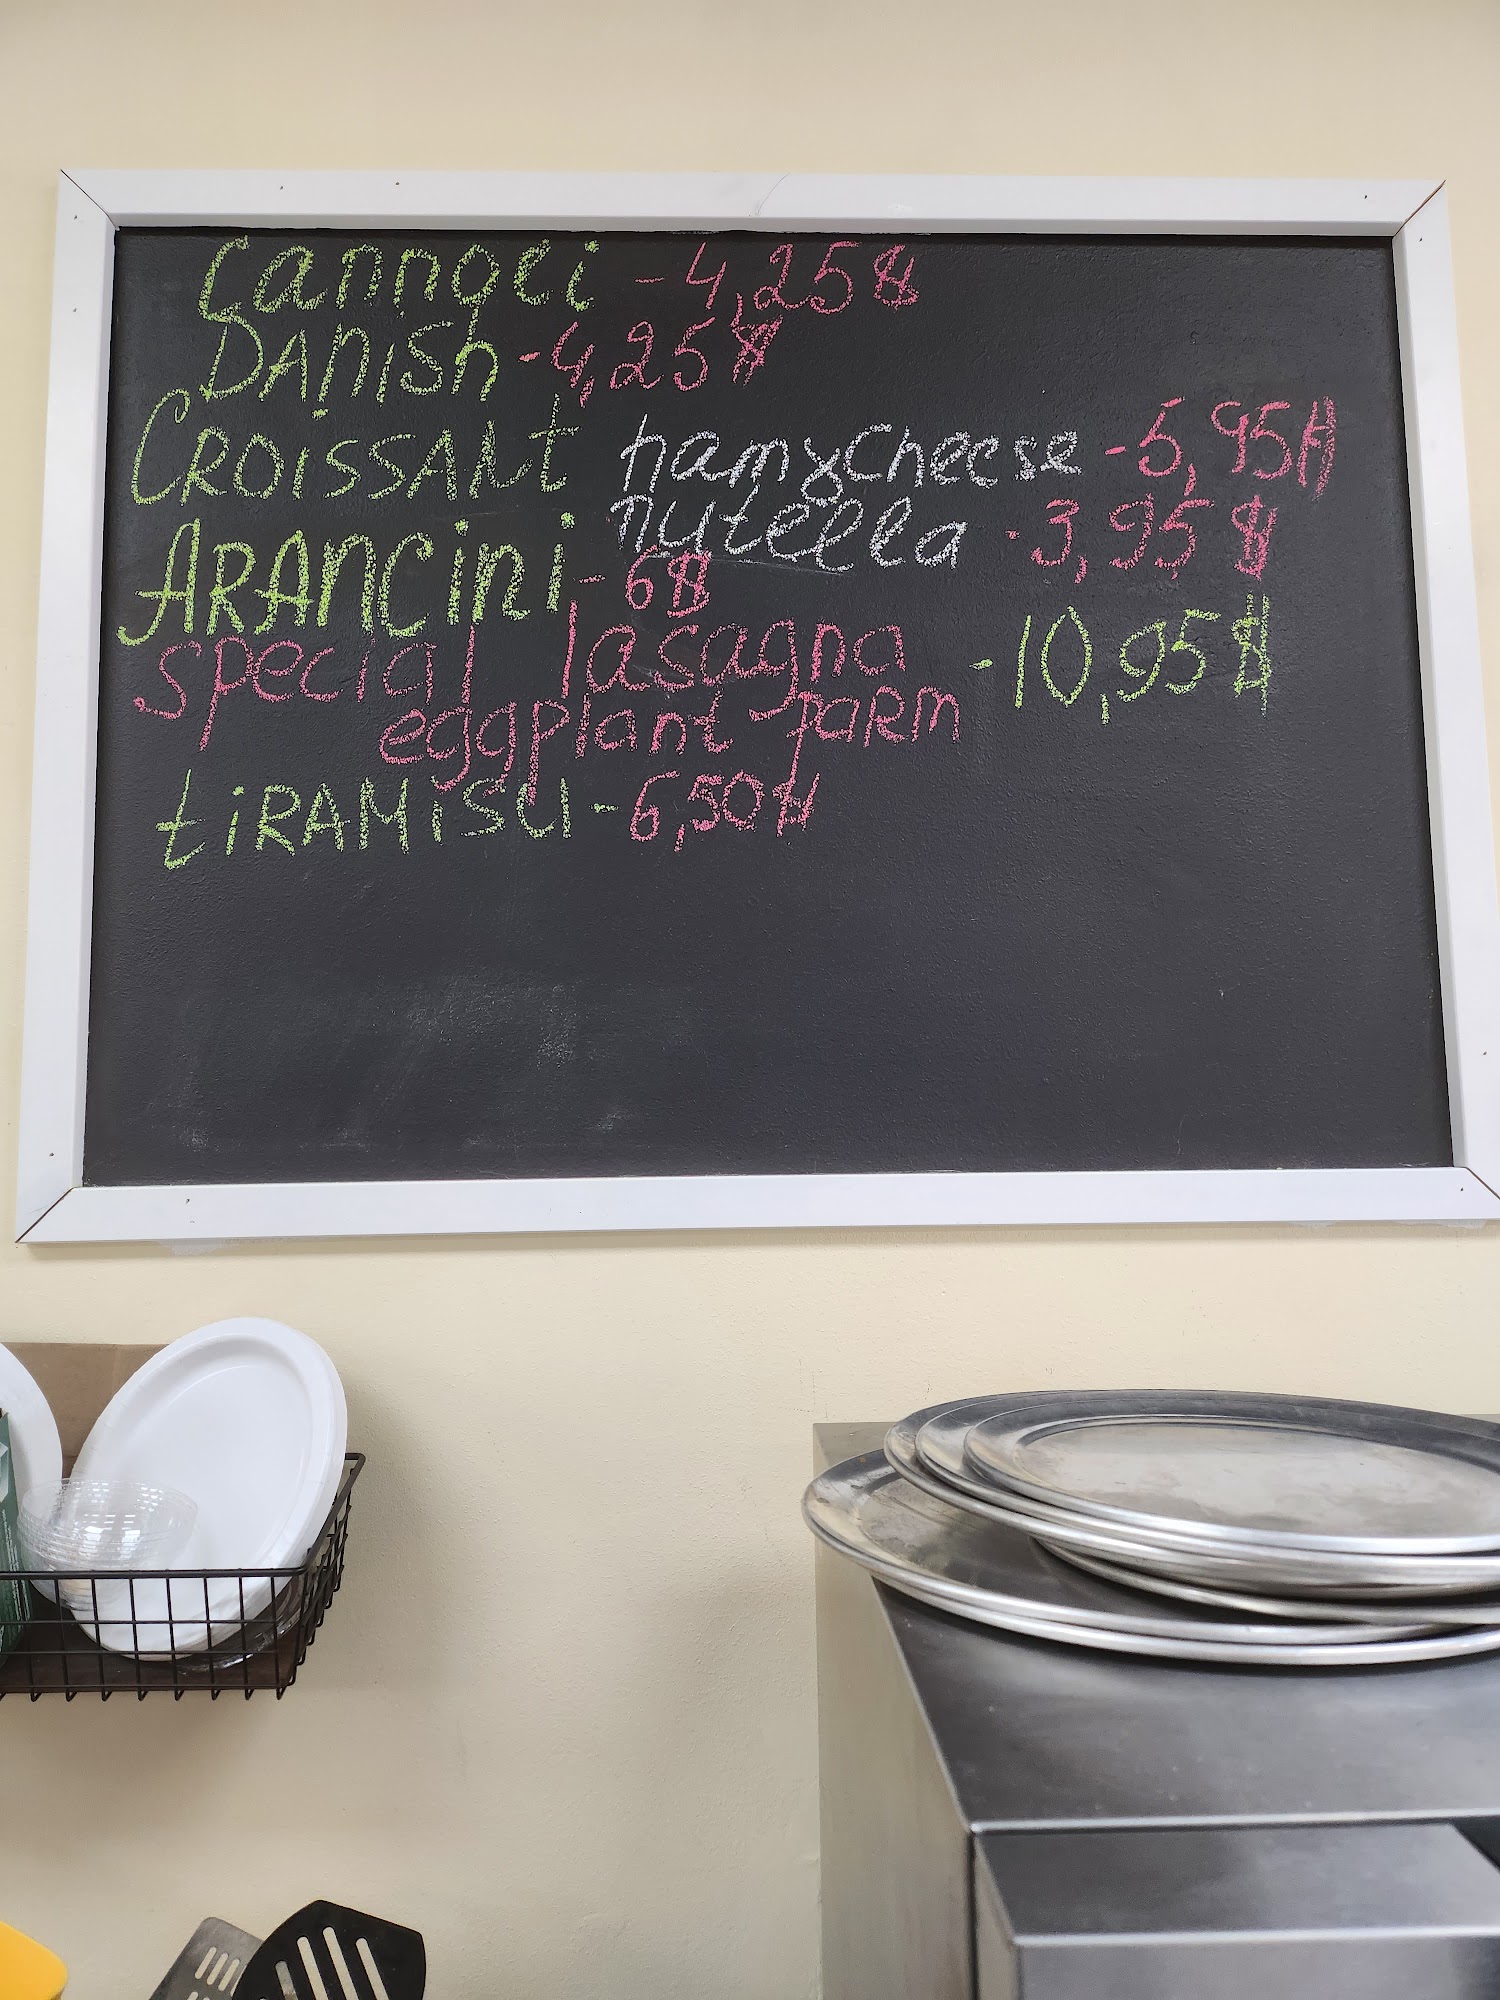 Cannoli - 4,25$
Danish - 4,25$
Croissant ham&cheese - 5,95$
nutella - 3,95$
Arancini - 6$
special lasagna - 10,95$
eggplant parm
tiramisu - 6,50$